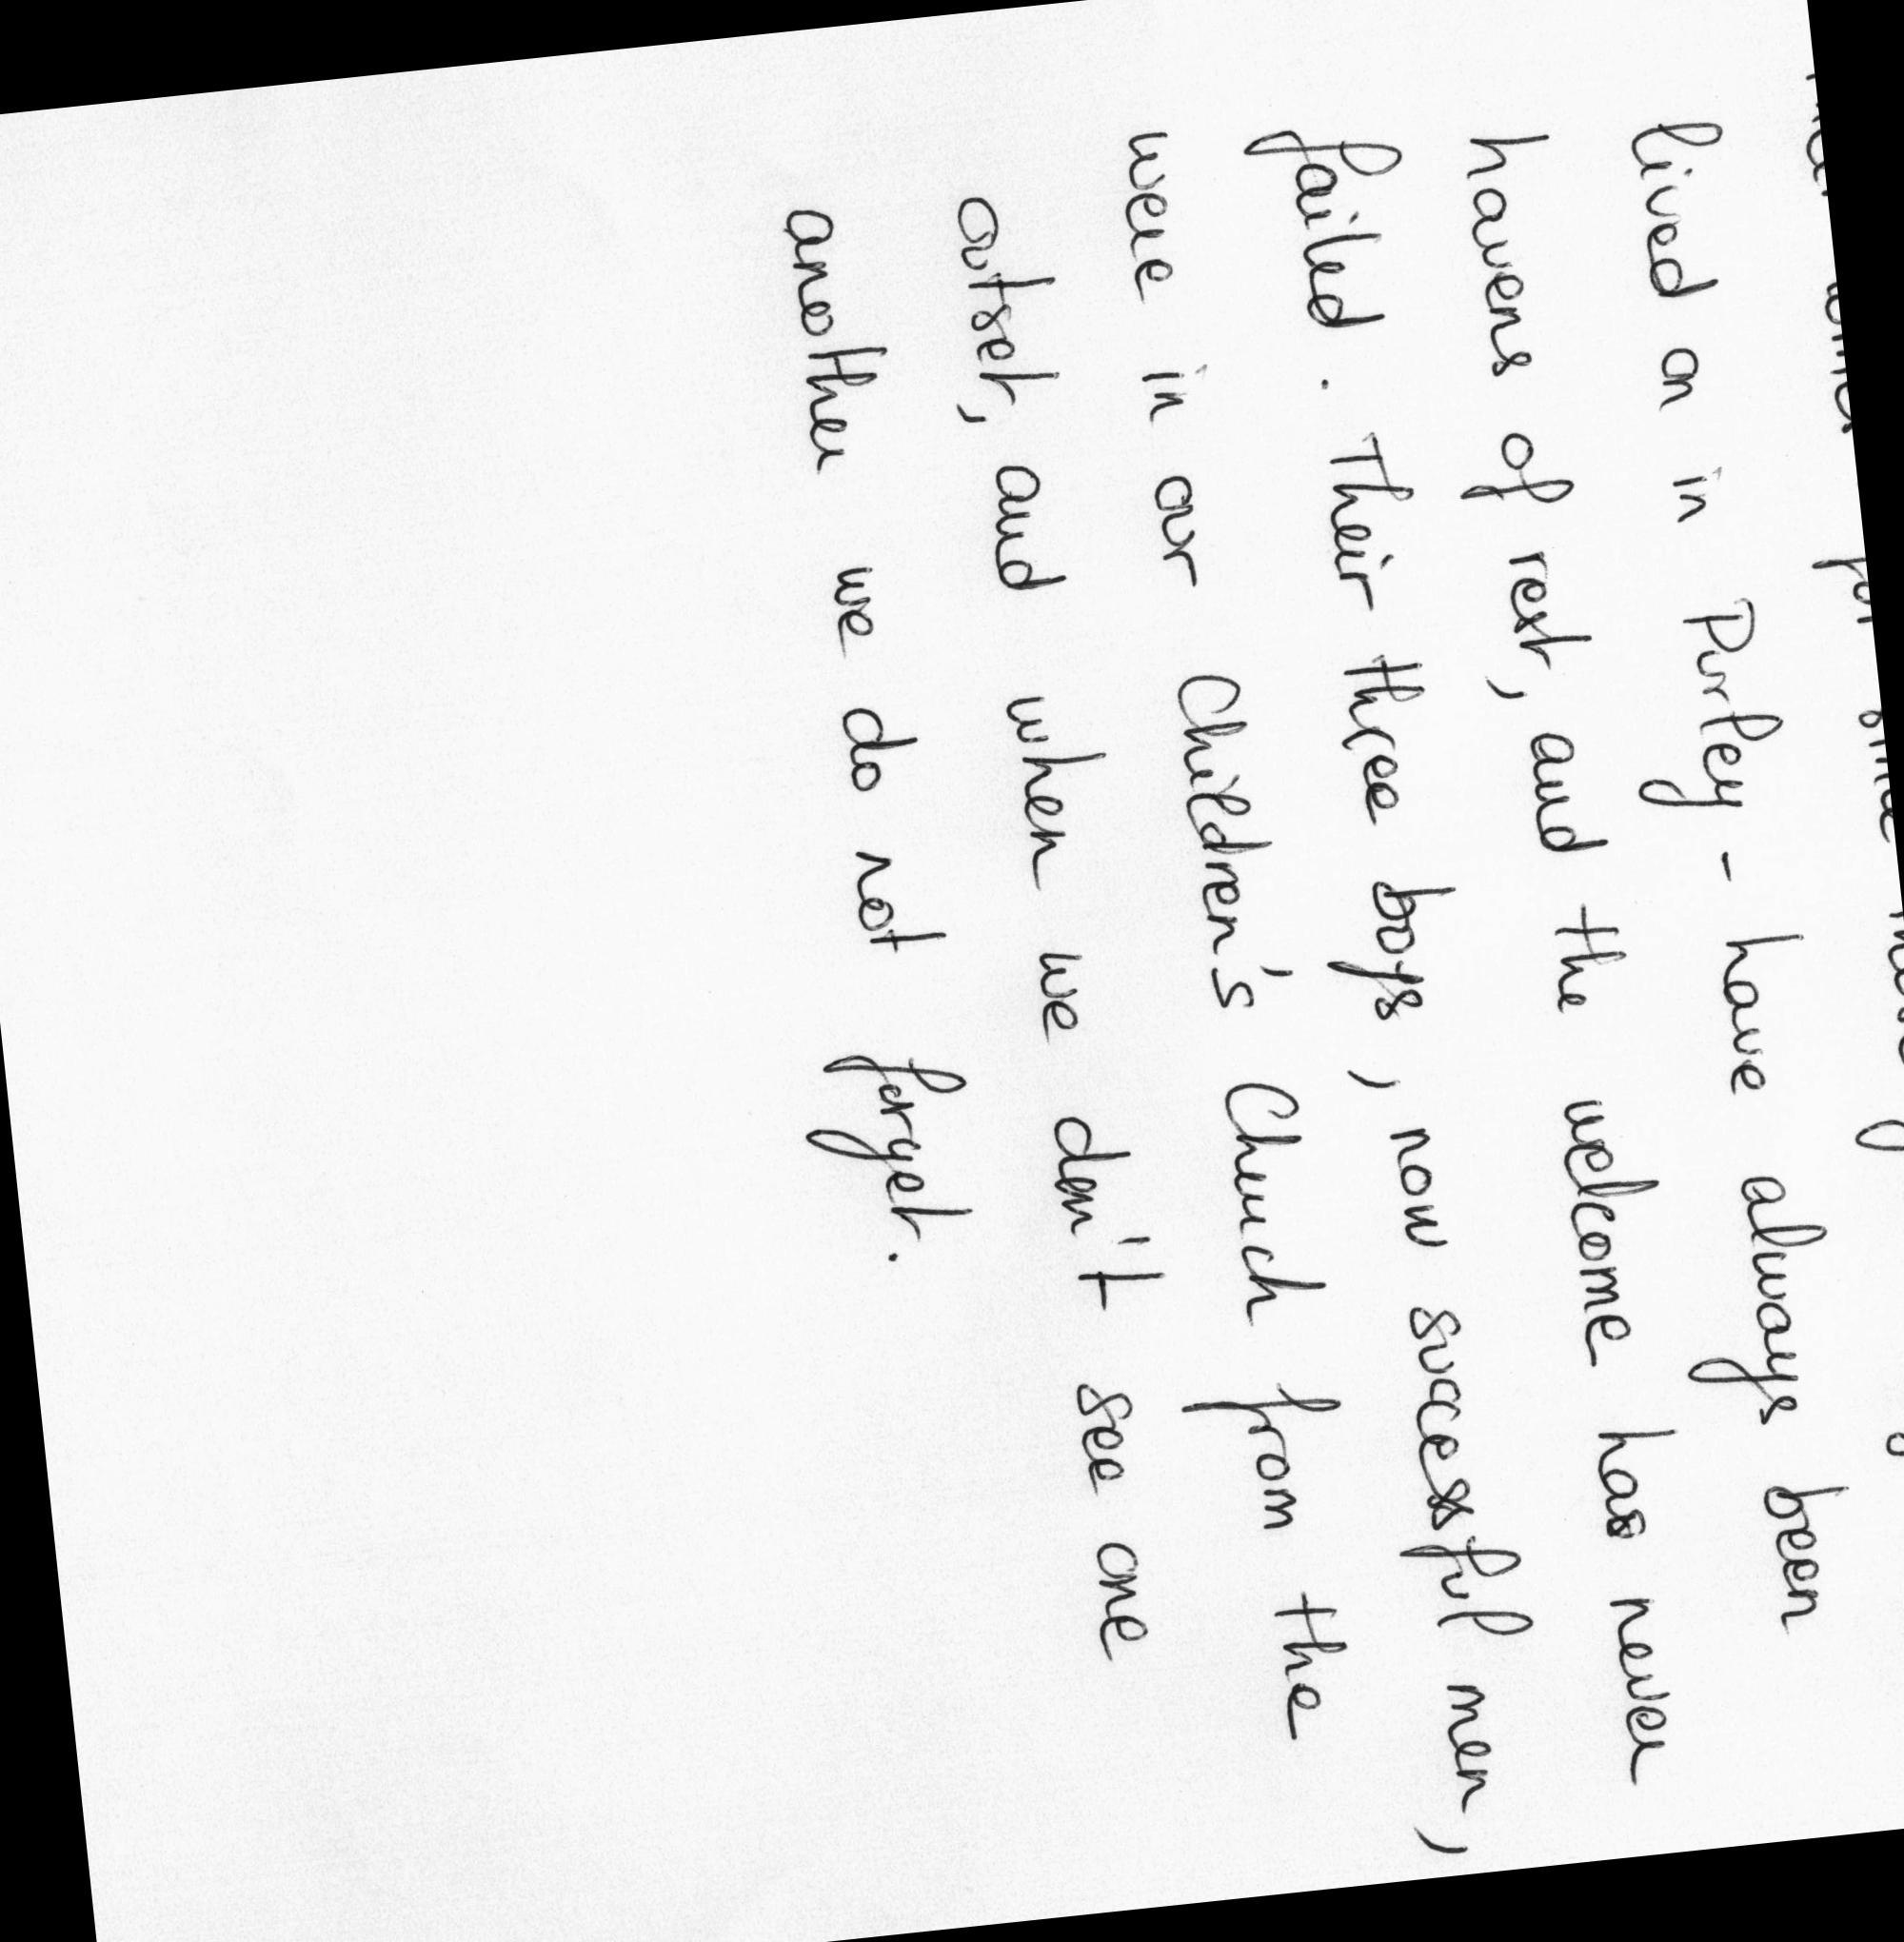 lived on in Purley - have always been
havens of rest, and the welcome has never
failed. Their three boys, now successful men,
were in our Children's Church from the
outset, and when we don't see one
another we do not forget.